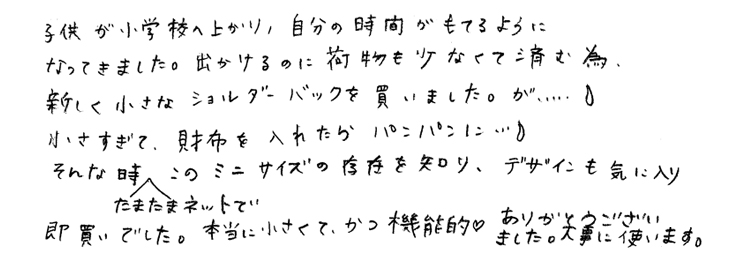 子供が小学校へ上がり、自分の時間がもてるように
なってきました。出かけるのに荷物も少なくて済む為、
新しく小さなショルダーバックを買いました。が、、、、、
小さすぎて、財布を入れたらパンパンに…
そんな時、このミニサイズの存在を知り、デザインも気に入り
たまたまネットで
即買いでした。本当に小さくて、かつ機能的♡ ありがとうござい
ました。大事に使います。